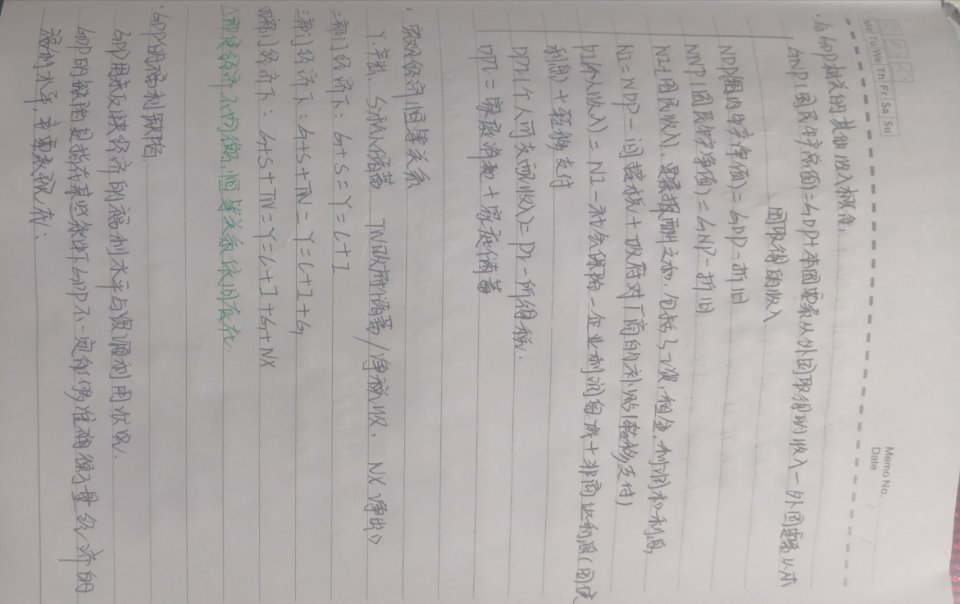 Mo Tu We Th Fr Sa Su
Memo No.
Date
·与GDP相关的其他收入概念.
GNP(国民生产总值)=GDP+本国要素从外国取得的收入-外国要素从本
国取得的收入
NDP(国内生产净值)=GDP-折旧
NNP(国民生产净值)=GNP-折旧
NI(国民收入),要素报酬之和,包括工资,租金,利润和利息
NI=NDP-间接税+政府对厂商的补贴(转移支付)
PI(个人收入)=NI-社会保险-企业利润留成+非商业利息(国债
利息)+转移支付
DPI(个人可支配收入)=PI-所得税.
DPI=家庭消费+家庭储蓄
·宏观经济恒等关系
Y产出, S私人储蓄 TN政府储蓄/净税收. NX净出口
二部门经济下: C+S=Y=C+I
三部门经济下: C+S+TN=Y=C+I+G
四部门经济下: C+S+TN=Y=C+I+G+NX
△即使经济不均衡,恒等关系依旧存在.
·GDP的福利缺陷
GDP用来反映经济的福利水平与资源利用状况.
GDP的缺陷是指在某些条件下GDP不一定能够准确衡量经济的
福利水平